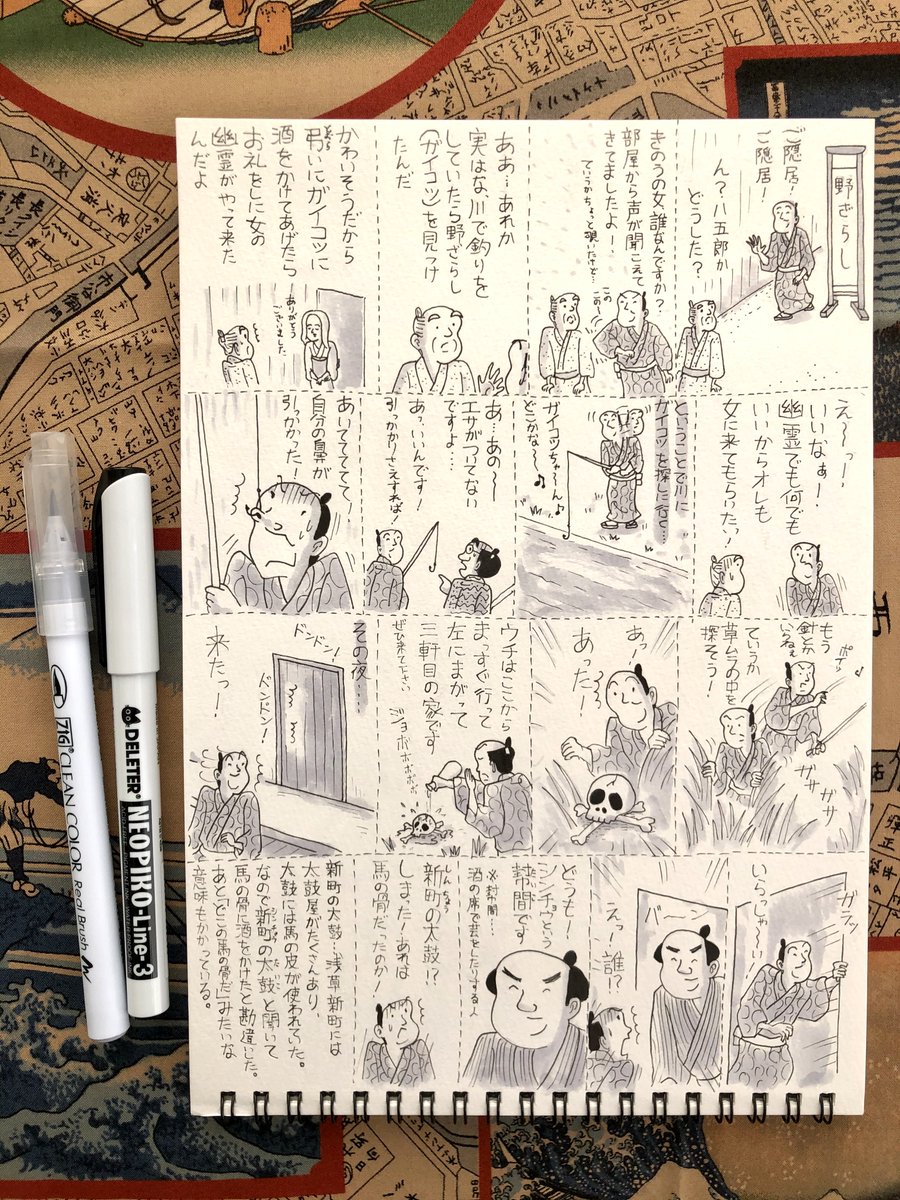 野ざらし
ご隠居!
ご隠居!
ん?八五郎か
どうした?
きのうの女、誰なんですか?
部屋から声が聞こえて
きてましたよ!
ていうかちょっと覗いたけど…
このこのー
ああ…あれか
実はな、川で釣りを
していたら野ざらし
(ガイコツ)を見つけ
たんだ
かわいそうだから
弔いにガイコツに
酒をかけてあげたら
お礼をしに女の
幽霊がやって来た
んだよ
ありがとう
ございました
え〜〜っ!
いいなぁ!
幽霊でも何でも
いいからオレも
女に来てもらったい!
ということで川に
ガイコツを探しに行く…
ガイコツちゃ〜ん♪
どこかな〜♪
あ…あの〜
エサがついてない
ですよ…
あっ、いいんです!
引っかかりさえすれば!
あいててててて、
自分の鼻が
引っかかった!
もう
針とか
いらねえ
ポイッ
ていうか
草ムラの中を
探そう!
ガサ
ガサ
あっ
あった!
ウチはここから
まっすぐ行って
左にまがって
三軒目の家です
ぜひ来て下さい
ジョボボボボボ
その夜…
ドンドン!
ドンドン!
来たっ!
ガラッ
いらっしゃ〜い
バーン
えっ!誰!?
どうも!
シンチョウという
幇間です
※幇間…
酒の席で芸をしたりする人
しんちょう
新町の太鼓!?
しまった!あれは
馬の骨だったのか!
新町の太鼓…浅草新町には
太鼓屋がたくさんあり、
太鼓には馬の皮が使われていた。
なので新町の太鼓と聞いて
馬の骨に酒をかけたと勘違いした。
あと「どこの馬の骨だ」みたいな
意味もかかっている。
ZIG CLEAN COLOR Real Brush
DELETER NEOPIKO-Line-3
市谷御門